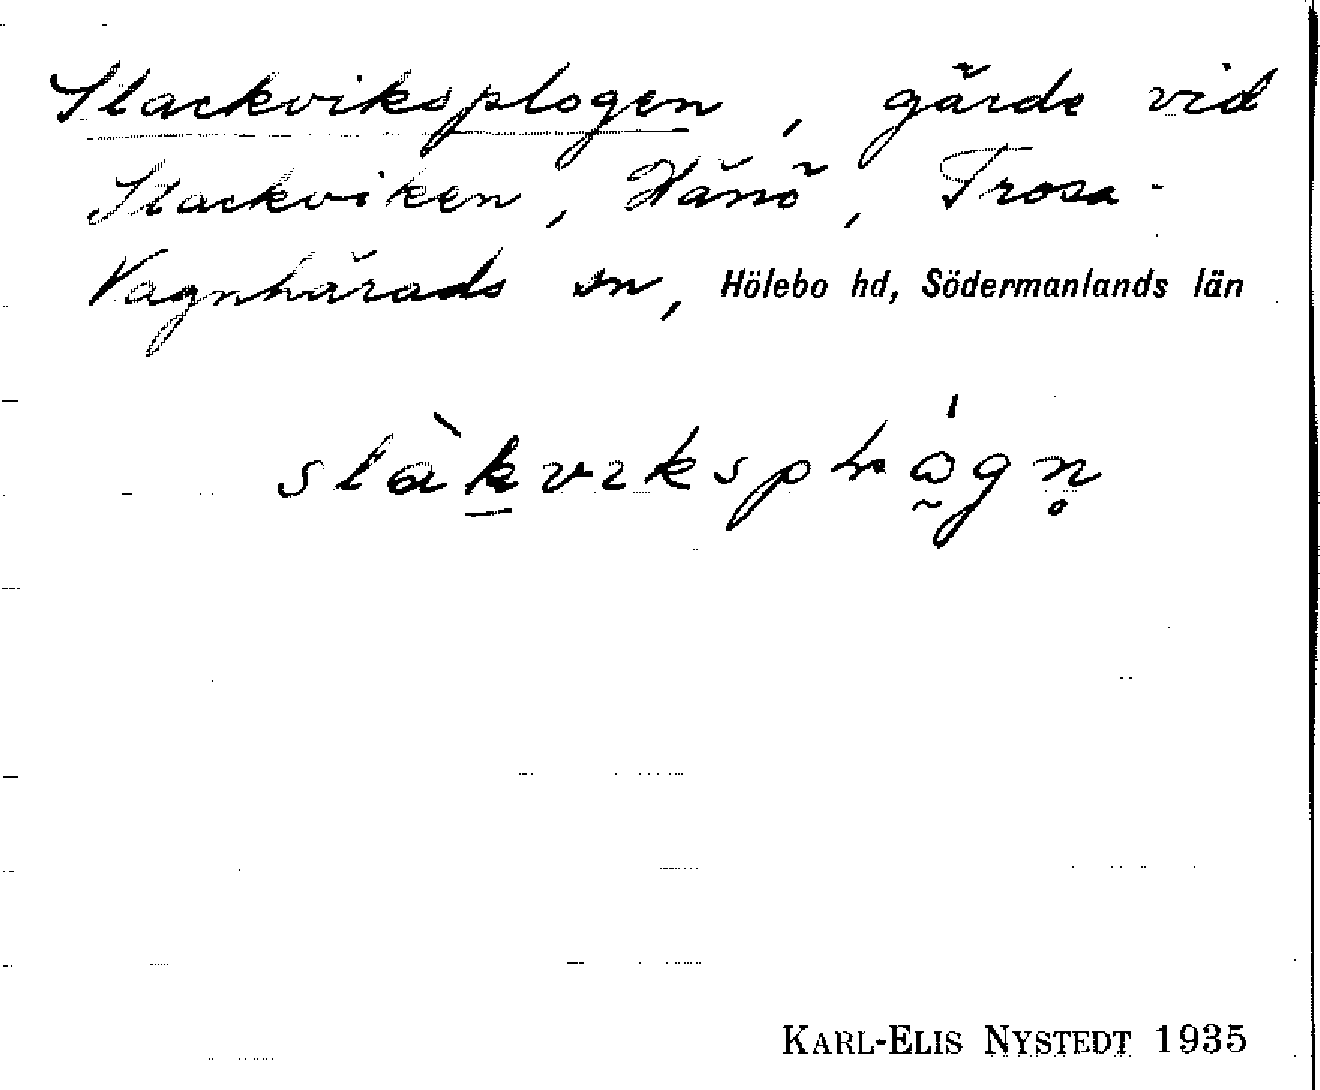 Slackviksplogen, gärde vid
Slackviken, Hänö, Trosa-
Vagnhärads sn, Hölebo hd, Södermanlands län
KARL-ELIS NYSTEDT 1935